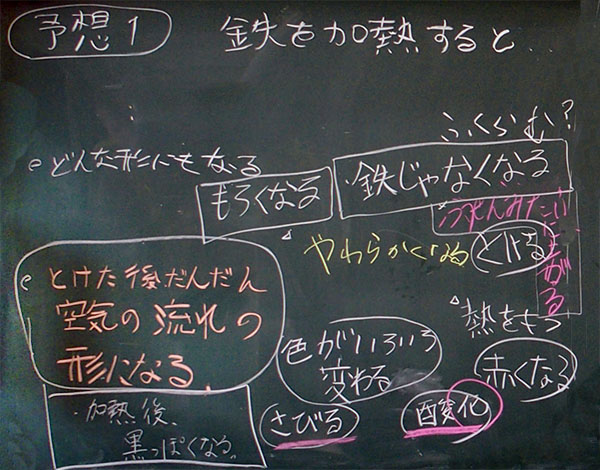 予想1
鉄を加熱すると...
ふくらむ?
どんな形にもなる
もろくなる
・鉄じゃなくなる
やわらかくなる
とける
とけた後だんだん
空気の流れの
形になる
熱をもつ
色がいろいろ
変わる
赤くなる
・加熱後、
黒っぽくなる。
さびる
酸化